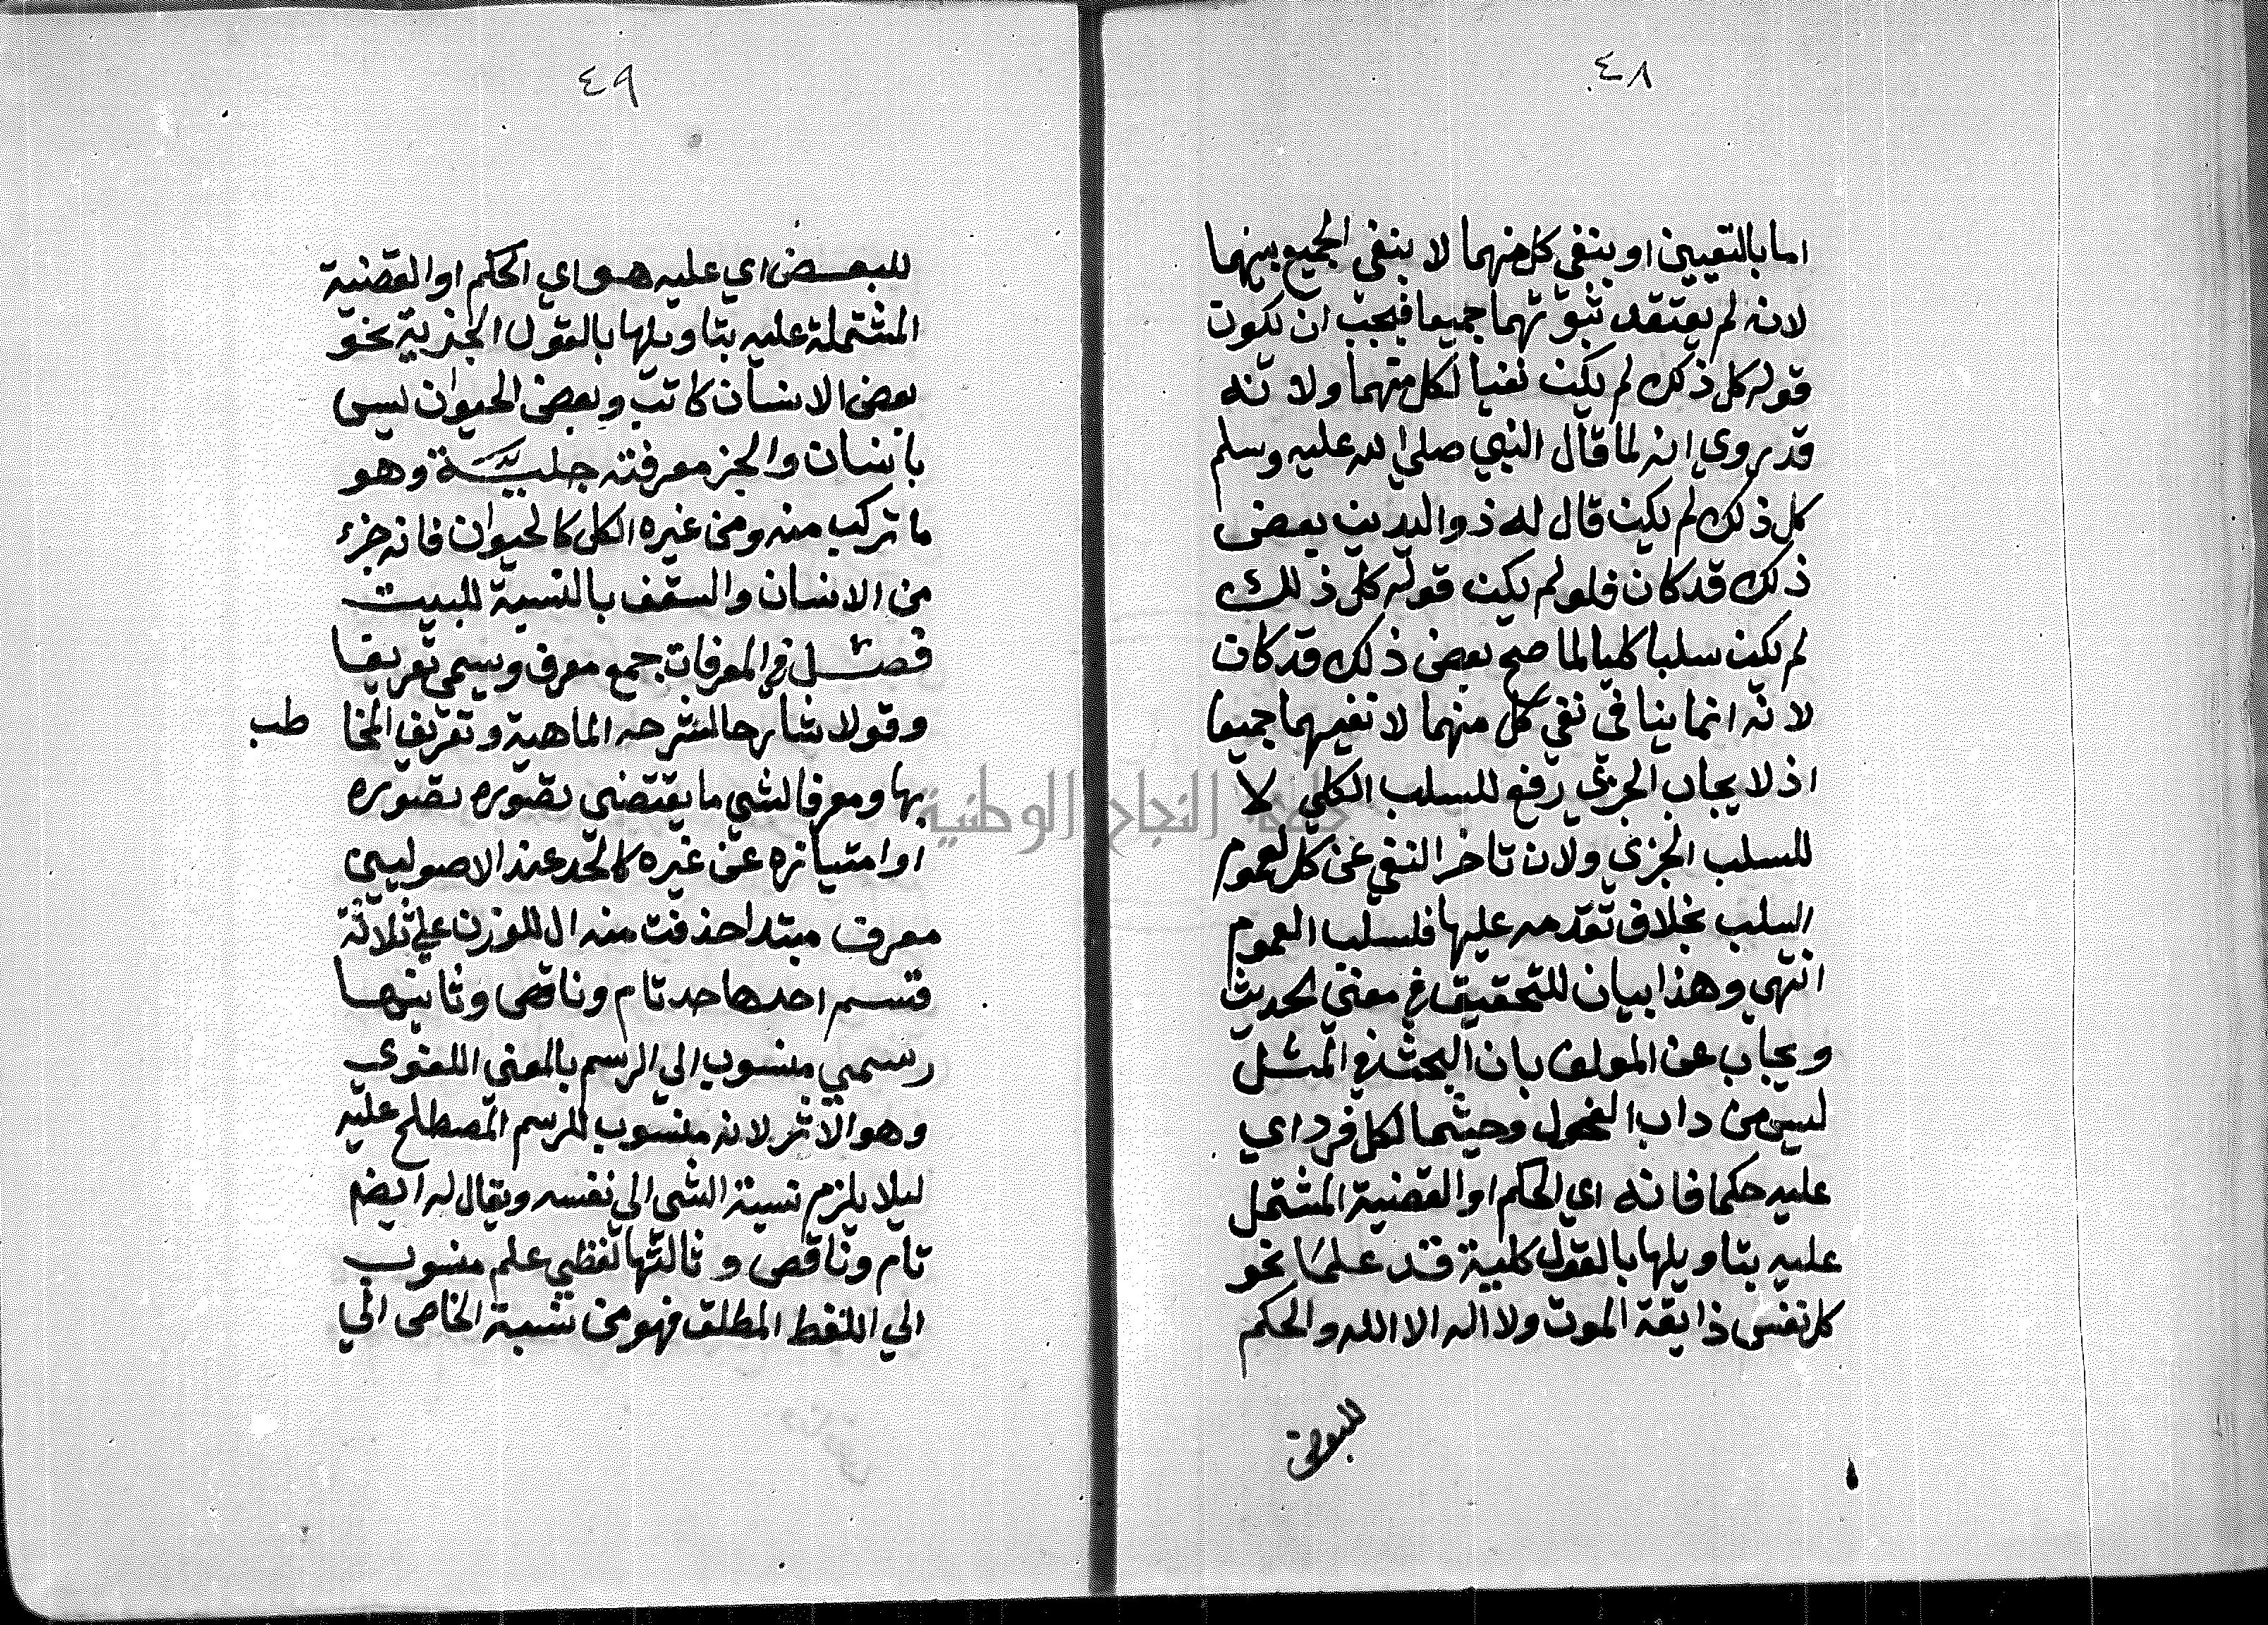 ٤٨
اما بالتعيين او بنفي كل منهما لا بنفي الجمع بينهما
لانه لم يعتقد ثبوتهما جميعا فيجب ان يكون
قوله كل ذلك لم يكن نفيا لكل منهما ولانه
قد روي انه لما قال النبي صلى الله عليه وسلم
كل ذلك لم يكن قال له ذو اليدين بعض
ذلك قد كان فلو لم يكن قوله كل ذلك
لم يكن سلبا كليا لما صح بعض ذلك قد كان
لانه انما ينافي نفي كل منهما لا نفيهما جميعا
اذ لا يجاب الجزئ رفع للسلب الكلي لا
للسلب الجزى ولان تاخر النفي عن كل لعموم
السلب بخلاف تقدمه عليها فلسلب العموم
انتهى وهذا بيان للتحقيق في معنى الحديث
ويجاب عن المولف بان البحث في المثل
ليس من داب الفحول وحيثما لكل فرد اي
عليه حكما فانه اي الحكم او القضية المشتمل
عليه بتاويلها بالقول كلية قد علما نحو
كل نفس ذايقة الموت ولا اله الا الله والحكم
للبعض
٤٩
للبعض اي عليه هو اي الحكم او القضية
المشتملة عليه بتاويلها بالقول الجزية نحو
بعض الانسان كاتب وبعض الحيوان ليس
بانسان والجز معرفته جلية وهو
ما تركب منه ومن غيره الكل كالحيوان فانه جزء
من الانسان والسقف بالنسبة للبيت
فصل في المعرفات جمع معرف ويسمى تعريفا
وقولا شارحا لشرحه الماهية وتعريف المخا طب
بها ومعرفا لشي ما يقتضي تصوره تصوره
او امتيازه عن غيره كالحد عند الاصوليين
معرف مبتدا حذفت منه ال للوزن على ثلاثة
قسم احدها حد تام وناقص وثانيها
رسمي منسوب الى الرسم بالمعنى اللغوي
وهو الاثر لانه منسوب للرسم المصطلح عليه
ليلا يلزم نسبة الشي الى نفسه ويقال له ايضم
تام وناقص وثالثها لفظي علم منسوب
الي اللفظ المطلق فهو من نسبة الخاص الي
جامعة النجاح الوطنية